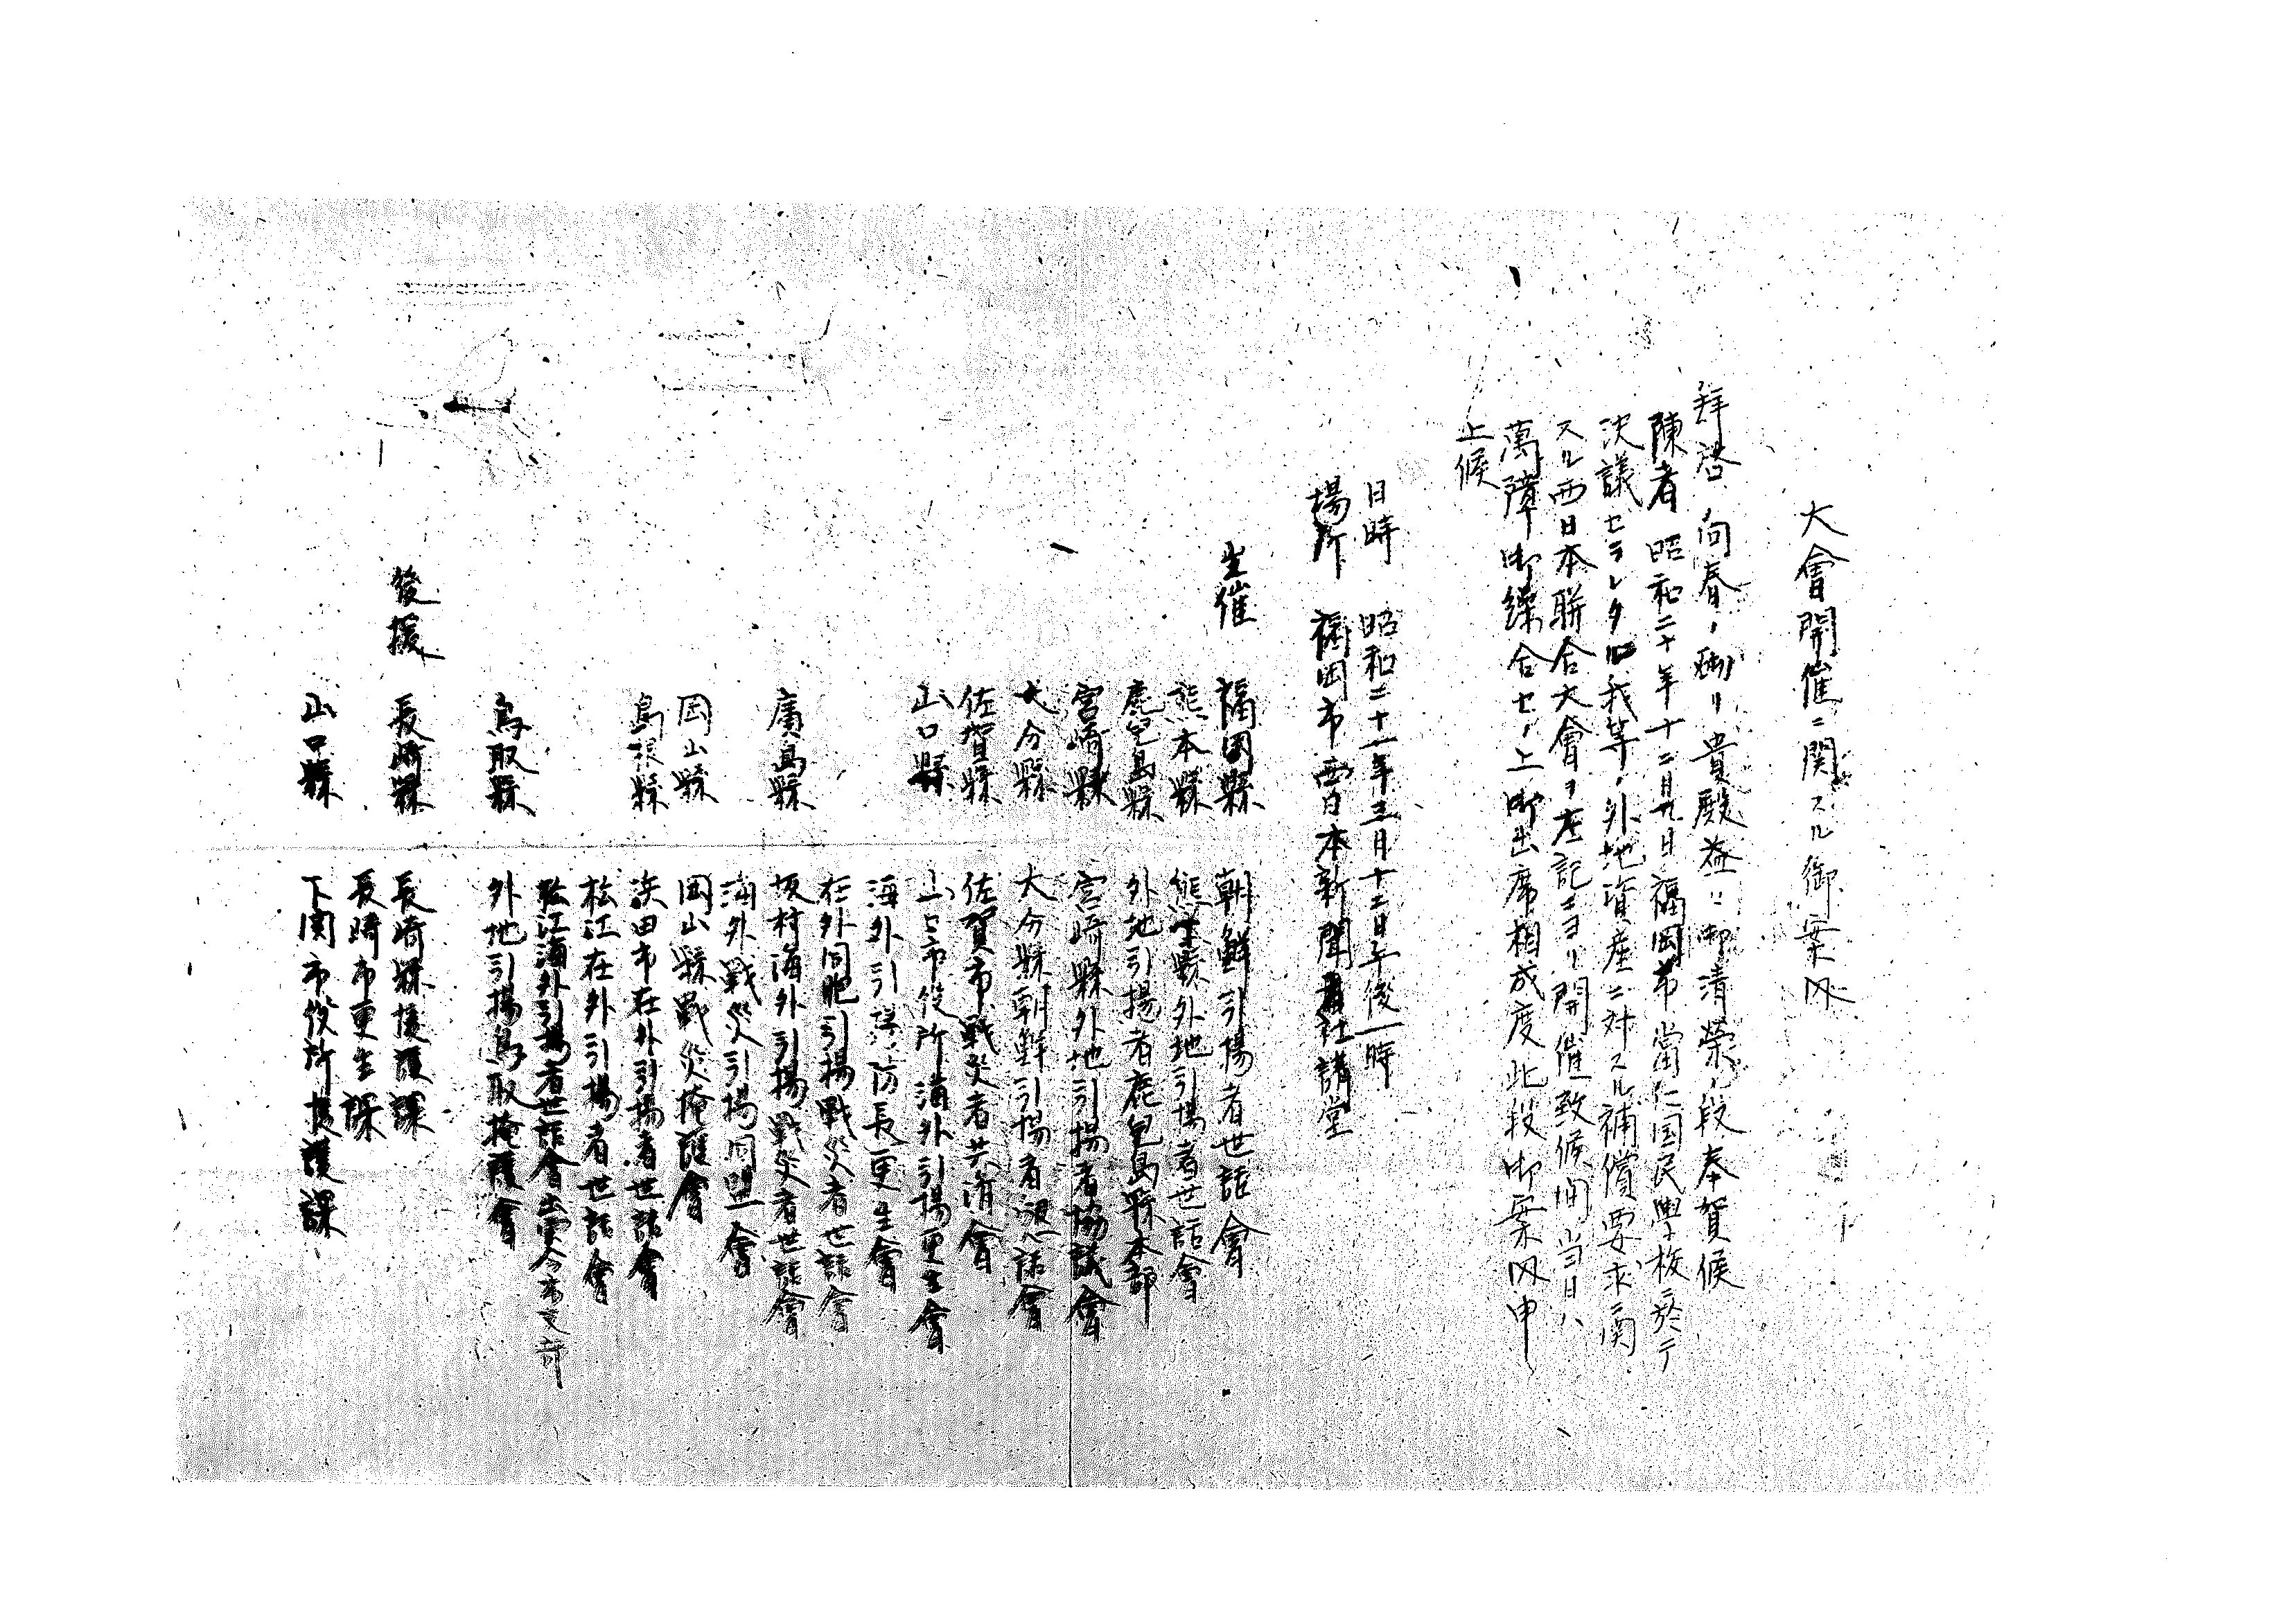 大會開催ニ関スル御案内
拜啓 向春ノ砌リ貴殿益々御清榮ノ段奉賀候
陳者 昭和二十年十二月九日福岡市當仁国民學校ニ於テ
決議セラレタル我等ノ外地資産ニ対スル補償要求ニ関
スル西日本聯合大會ヲ左記ニヨリ開催致候間当日ハ
萬障御繰合セノ上御出席相成度此段御案内申
上候
日時 昭和二十一年三月十二日午後一時
場所 福岡市西日本新聞社講堂
主催 福岡縣 朝鮮引揚者世話會
熊本縣 熊本縣外地引揚者世話會
鹿児島縣 外地引揚者鹿児島縣本部
宮崎縣 宮崎縣外地引揚者協議會
大分縣 大分縣朝鮮引揚者世話會
佐賀縣 佐賀市戰災者共済會
山口縣 市役所海外引揚更生會
海外引揚防長更生會
在外同胞引揚戰災者世話會
廣島縣 坂村海外引揚戰災者世話會
海外戰災引揚同盟會
岡山縣 岡山縣戰災援護會
島根縣 浜田市在外引揚者世話會
松江在外引揚者世話會
松江海外引揚者世話會出雲今市支部
鳥取縣 外地引揚鳥取援護會
後援 長崎縣 長崎縣援護課
長崎市更生課
山口縣 下関市役所援護課